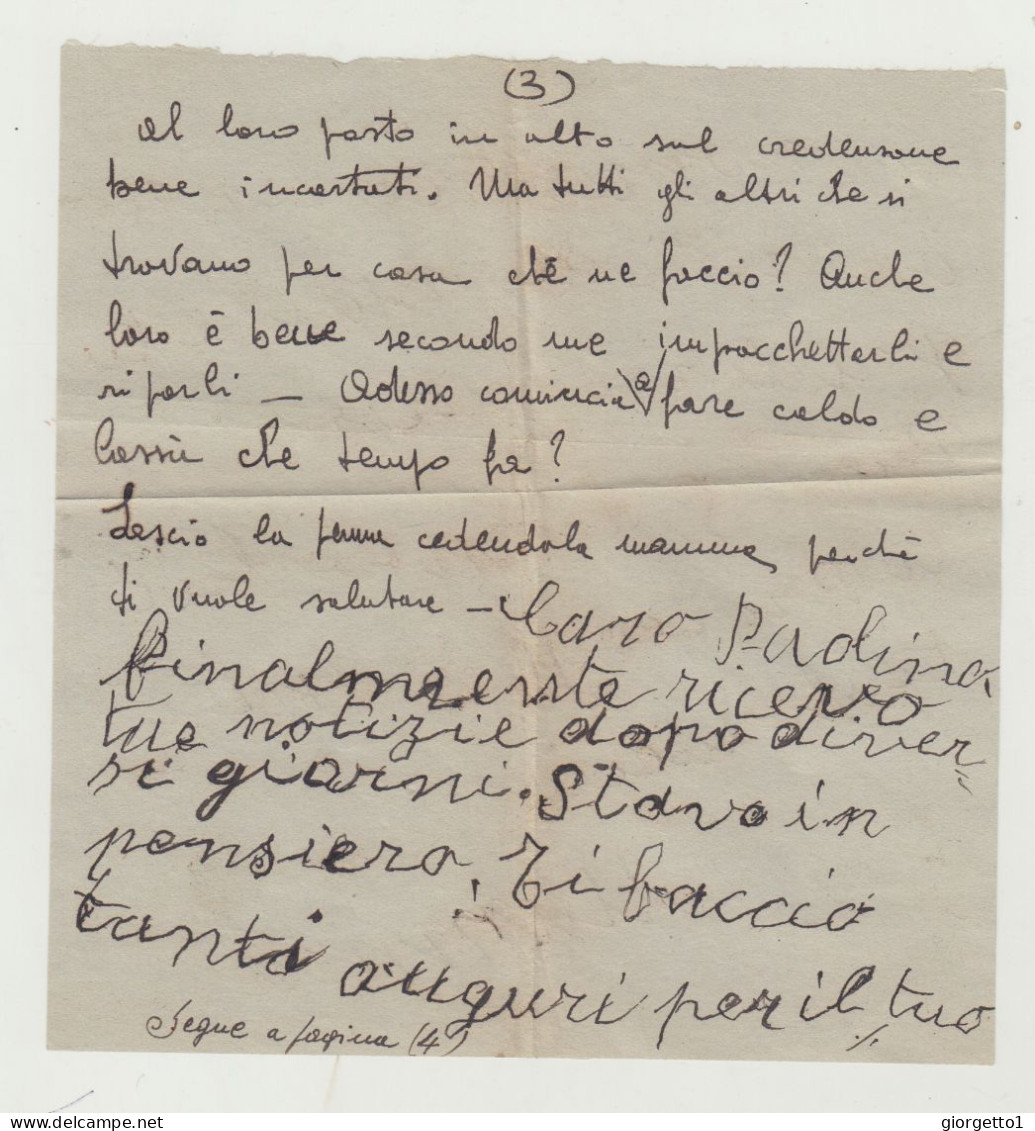 (3)
al loro posto in alto sul credensone
bene incartati. Ma tutti gli altri che si
trovano per casa chè ne faccio? Anche
loro è bene secondo me impacchettarli e
riporli — Adesso comincia a fare caldo e
lassù che tempo fa?
Lascio la penna cedendola mamma, perchè
ti vuole salutare — Caro Paolino,
finalmente ricevo
tue notizie dopo diver=
si giorni. Stavo in
pensiero. Ti baccio
tanti auguri per il tuo
Segue a pagina (4) ./.
giorgetto1